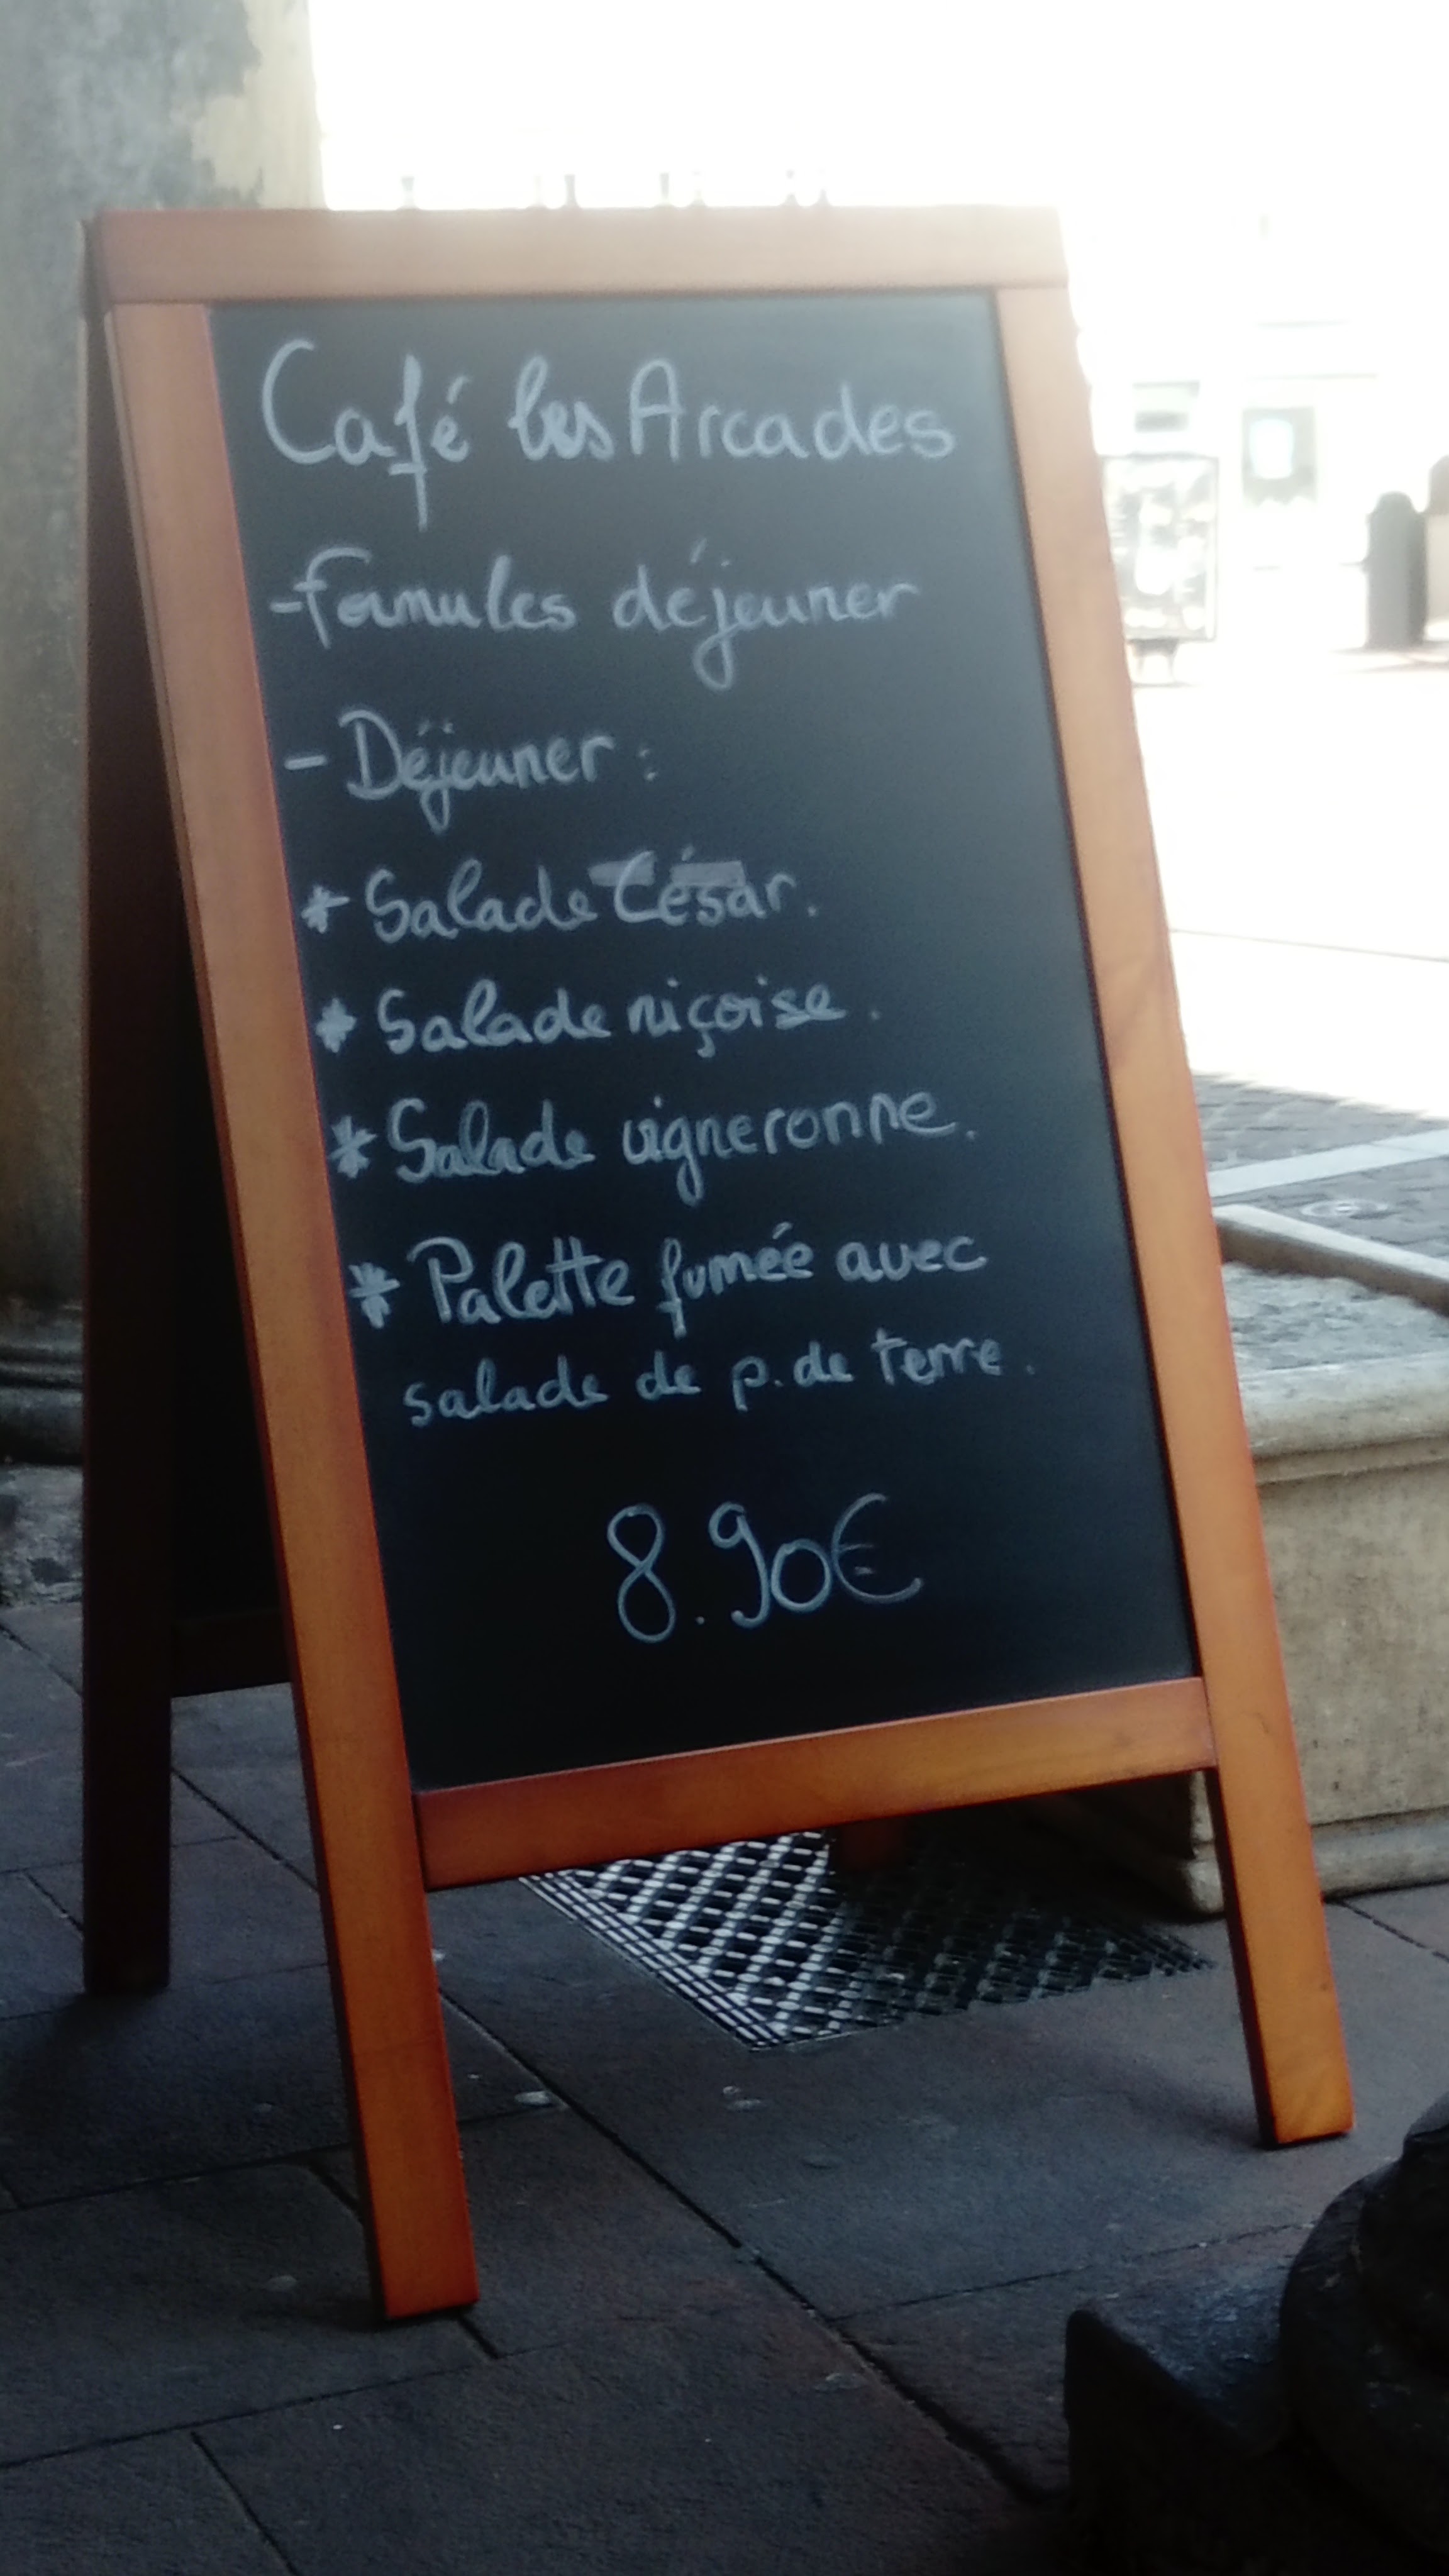 Café les Arcades
- Formules déjeuner
- Déjeuner :
* Salade César.
* Salade niçoise.
* Salade vigneronne.
* Palette fumée avec
salade de p. de terre.
8.90€